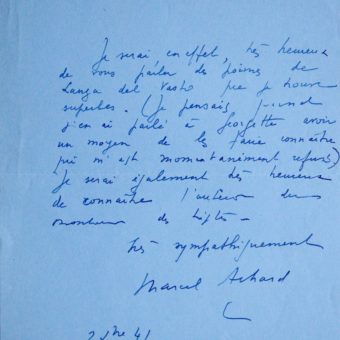 Je serai en effet, très heureux
de vous parler des poèmes de
Lanza del Vasto que je trouve
superbes. (Je pensais, quand
j'en ai parlé à Georgette avoir
un moyen de les faire connaître
qui m'est momentanément refusé)
Je serai également très heureux
de connaître l'auteur du
Monheur des
très sympathiquement
Marcel Achard
41